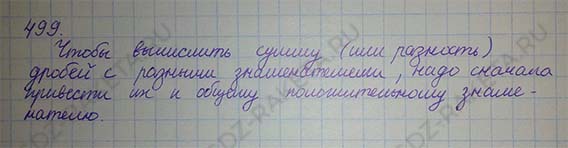 499.
Чтобы вычислить сумму (или разность)
дробей с разными знаменателями, надо сначала
привести их к общему положительному знаме-
нателю.